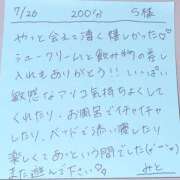 7/26 200分 S様
やっと会えて凄く嬉しかった♡
シュークリームと飲み物の差し
入れもありがとう!!いっぱい
敏感なアソコ気持ちよくして
くれたり、お風呂でイチャイチャ
したり、ベッドで添い寝したり
楽しくてあっという間でした(^^)
また遊んで下さい。 みと